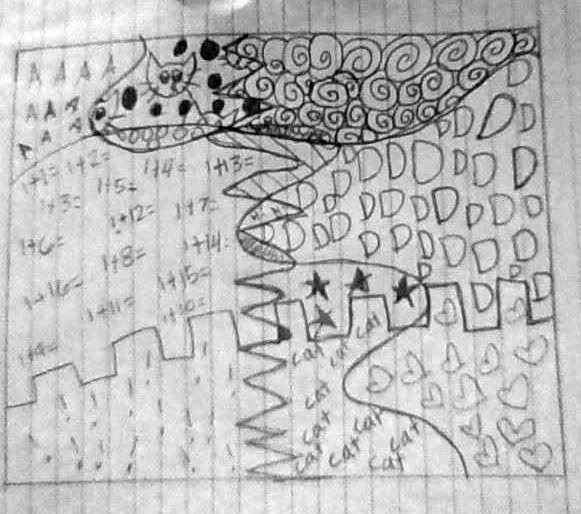 A A A A
A A A
A A
A
1+1= 1+2= 1+4= 1+13=
1+3= 1+5=
1+12= 1+7=
1+6= 1+8= 1+14=
1+16= 1+15=
1+11= 1+10=
1+9=
D
D D D
D D D D D
D D D D D D D
D D D D D D
D D D
D D
cat cat cat
cat
cat cat
cat cat
cat cat cat
! ! ! ! !